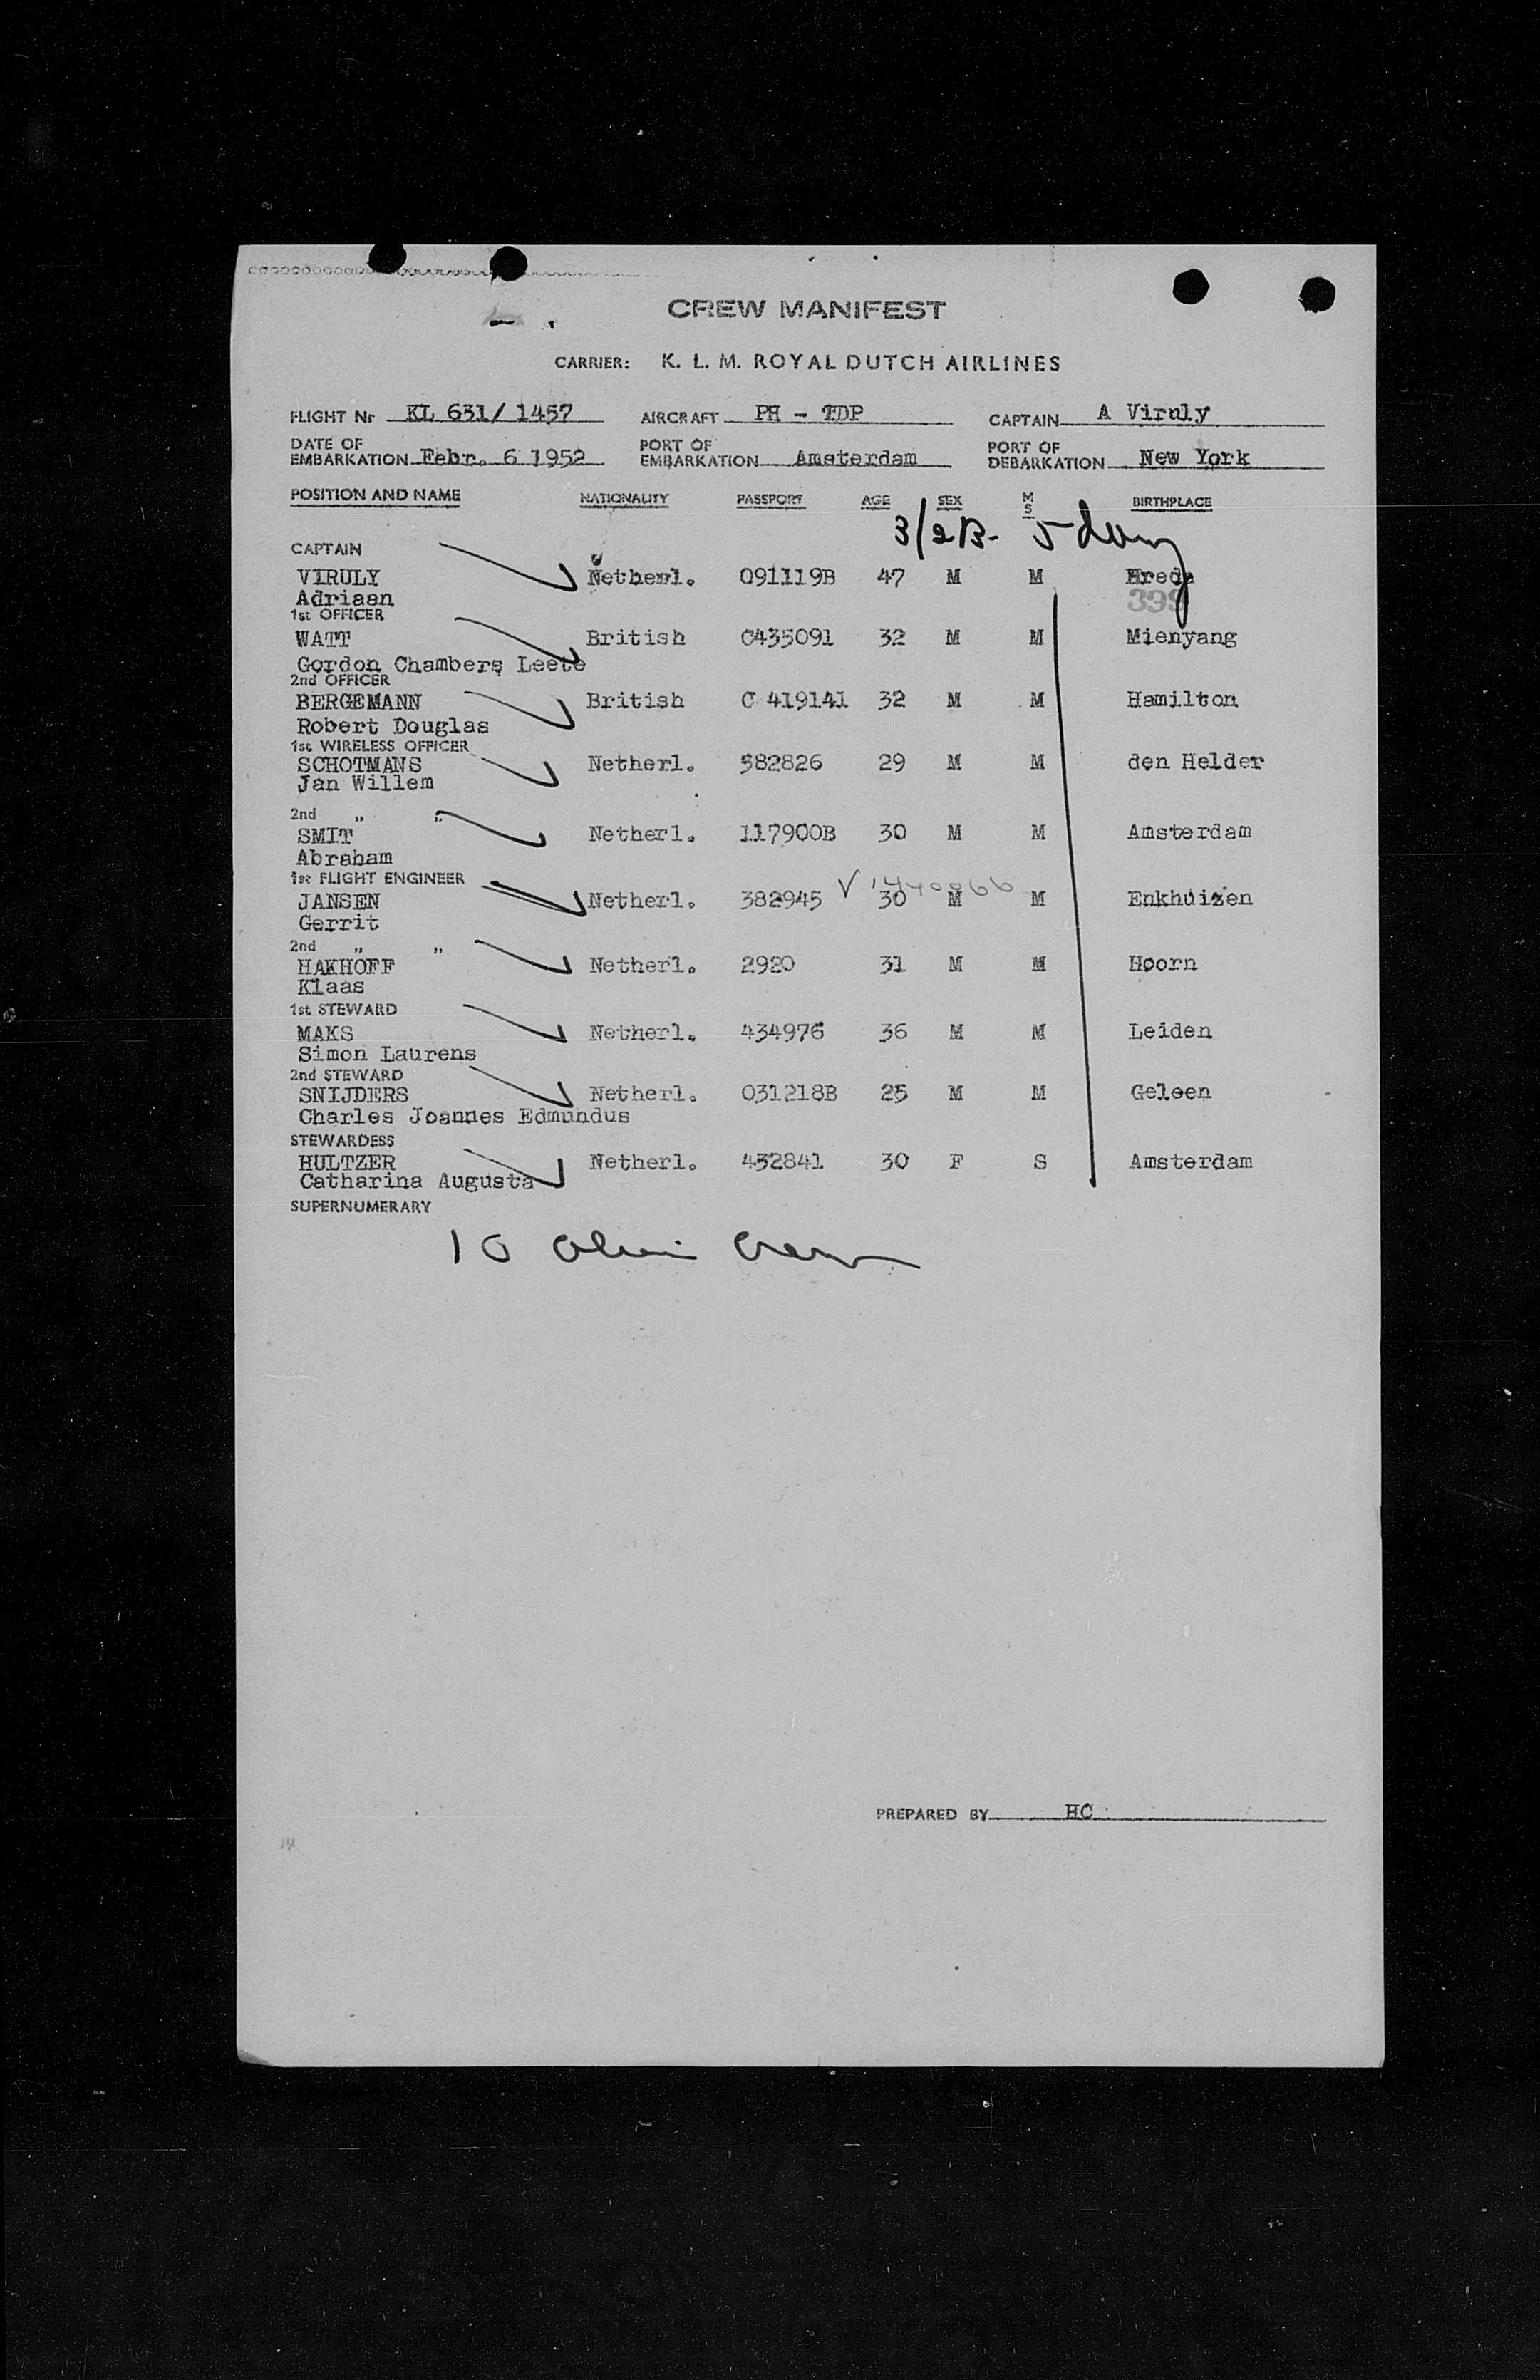 CREW MANIFEST
CARRIER: K. L. M. ROYAL DUTCH AIRLINES
FLIGHT Nr KL 631/ 1457 AIRCRAFT PH - TDP CAPTAIN A Viruly
DATE OF EMBARKATION Febr. 6 1952 PORT OF EMBARKATION Amsterdam PORT OF DEBARKATION New York
POSITION AND NAME NATIONALITY PASSPORT AGE SEX M S BIRTHPLACE
3/2B- 5 days
CAPTAIN
VIRULY Netherl. 091119B 47 M M Breda
Adriaan 399
1st OFFICER
WATT British C435091 32 M M Mienyang
Gordon Chambers Leete
2nd OFFICER
BERGEMANN British C 419141 32 M M Hamilton
Robert Douglas
1st WIRELESS OFFICER
SCHOTMANS Netherl. 582826 29 M M den Helder
Jan Willem
2nd " "
SMIT Netherl. 117900B 30 M M Amsterdam
Abraham
1st FLIGHT ENGINEER
JANSEN Netherl. 382945 30 M M Enkhuizen
Gerrit
2nd " "
HAKHOFF Netherl. 2920 31 M M Hoorn
Klaas
1st STEWARD
MAKS Netherl. 434976 36 M M Leiden
Simon Laurens
2nd STEWARD
SNIJDERS Netherl. 031218B 25 M M Geleen
Charles Joannes Edmundus
STEWARDESS
HULTZER Netherl. 432841 30 F S Amsterdam
Catharina Augusta
SUPERNUMERARY
10 alien crew
PREPARED BY HC